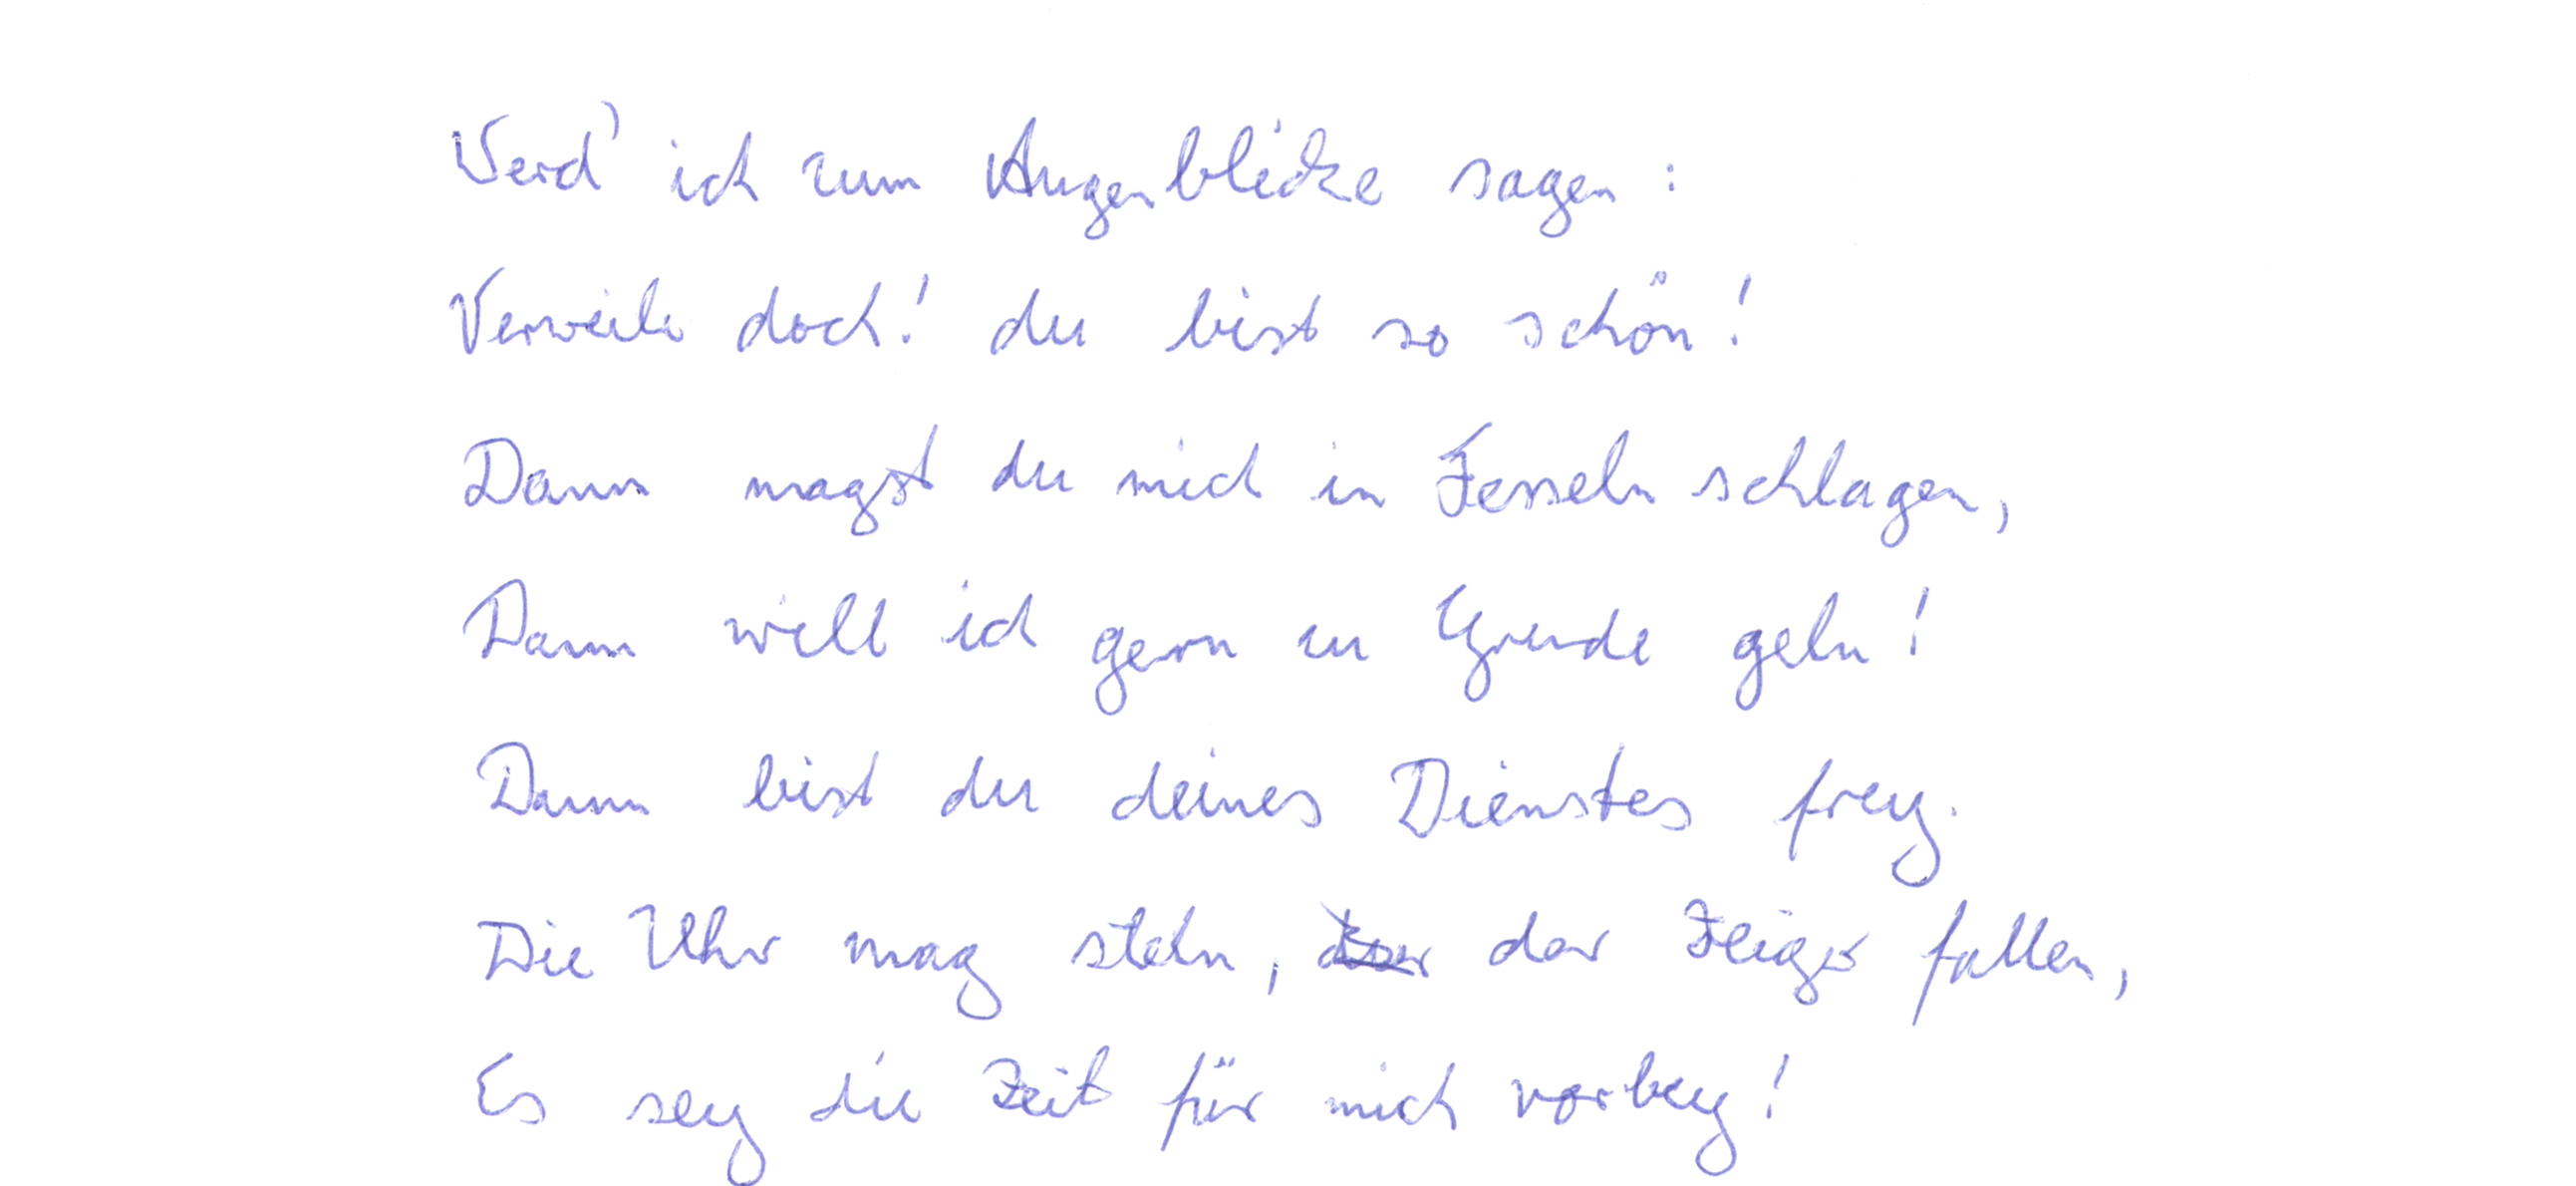 Werd' ich zum Augenblicke sagen:
Verweile doch! du bist so schön!
Dann magst du mich in Fesseln schlagen,
Dann will ich gern zu Grunde gehn!
Dann bist du deines Dienstes frey.
Die Uhr mag stehn, der Zeiger fallen,
Es sey die Zeit für mich vorbey!